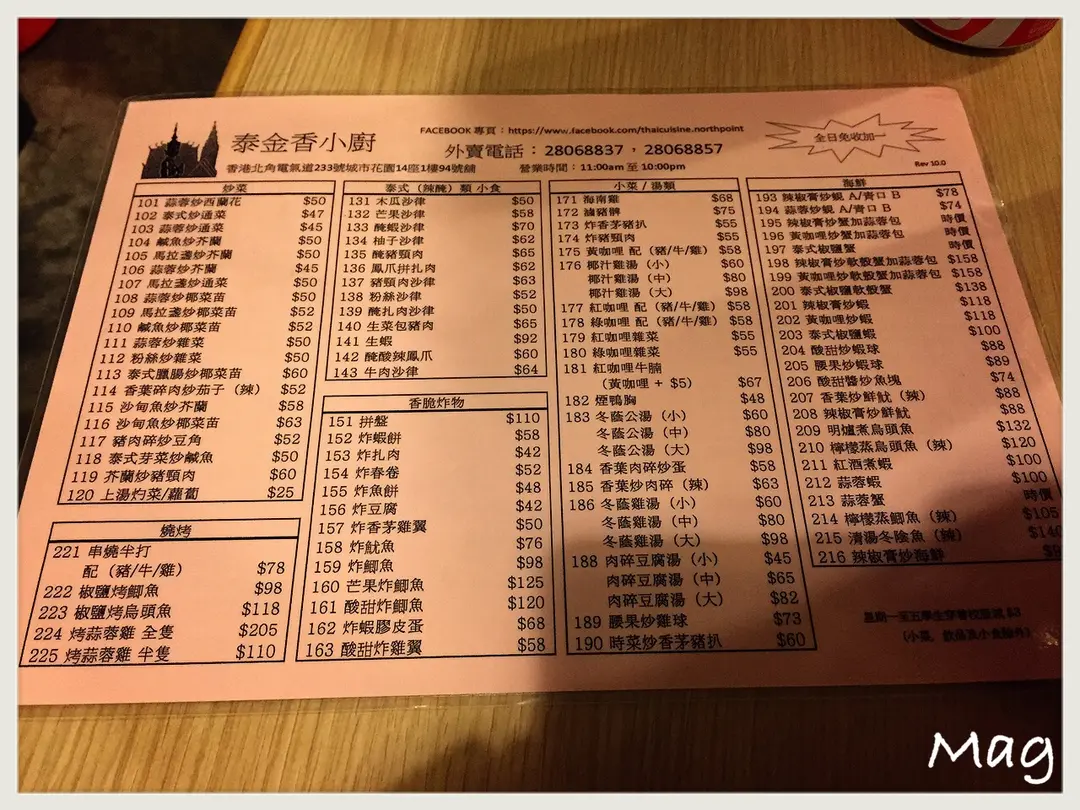 泰金香小廚
FACEBOOK 專頁：https://www.facebook.com/thaicuisine.northpoint
外賣電話：28068837，28068857
香港北角電氣道233號城市花園14座1樓94號舖 營業時間：11:00am 至 10:00pm
全日免收加一
Rev 10.0
炒菜
101 蒜蓉炒西蘭花 $50
102 泰式炒通菜 $47
103 蒜蓉炒通菜 $45
104 鹹魚炒芥蘭 $50
105 馬拉盞炒芥蘭 $50
106 蒜蓉炒芥蘭 $45
107 馬拉盞炒通菜 $50
108 蒜蓉炒椰菜苗 $50
109 馬拉盞炒椰菜苗 $52
110 鹹魚炒椰菜苗 $52
111 蒜蓉炒雜菜 $50
112 粉絲炒雜菜 $50
113 泰式臘腸炒椰菜苗 $60
114 香葉碎肉炒茄子（辣） $52
115 沙甸魚炒芥蘭 $58
116 沙甸魚炒椰菜苗 $63
117 豬肉碎炒豆角 $52
118 泰式芽菜炒鹹魚 $50
119 芥蘭炒豬頸肉 $60
120 上湯灼菜/蘿蔔 $25
燒烤
221 串燒半打
配（豬/牛/雞） $78
222 椒鹽烤鯽魚 $98
223 椒鹽烤烏頭魚 $118
224 烤蒜蓉雞 全隻 $205
225 烤蒜蓉雞 半隻 $110
泰式（辣醃）類 小食
131 木瓜沙律 $50
132 芒果沙律 $58
133 醃蝦沙律 $70
134 柚子沙律 $62
135 醃豬頸肉 $65
136 鳳爪拼扎肉 $62
137 豬頸肉沙律 $63
138 粉絲沙律 $52
139 醃扎肉沙律 $50
140 生菜包豬肉 $65
141 生蝦 $92
142 醃酸辣鳳爪 $60
143 牛肉沙律 $64
香脆炸物
151 拼盤 $110
152 炸蝦餅 $58
153 炸扎肉 $42
154 炸春卷 $52
155 炸魚餅 $48
156 炸豆腐 $42
157 炸香茅雞翼 $50
158 炸魷魚 $76
159 炸鯽魚 $98
160 芒果炸鯽魚 $125
161 酸甜炸鯽魚 $120
162 炸蝦膠皮蛋 $68
163 酸甜炸雞翼 $58
小菜 / 湯類
171 海南雞 $68
172 滷豬髀 $75
173 炸香茅豬扒 $55
174 炸豬頸肉 $55
175 黃咖哩 配（豬/牛/雞） $58
176 椰汁雞湯（小） $60
椰汁雞湯（中） $80
椰汁雞湯（大） $98
177 紅咖哩 配（豬/牛/雞） $58
178 綠咖哩 配（豬/牛/雞） $58
179 紅咖哩雜菜 $55
180 綠咖哩雜菜 $55
181 紅咖哩牛腩
（黃咖哩 + $5） $67
182 煙鴨胸 $48
183 冬蔭公湯（小） $60
冬蔭公湯（中） $80
冬蔭公湯（大） $98
184 香葉肉碎炒蛋 $58
185 香葉炒肉碎（辣） $63
186 冬蔭雞湯（小） $60
冬蔭雞湯（中） $80
冬蔭雞湯（大） $98
188 肉碎豆腐湯（小） $45
肉碎豆腐湯（中） $65
肉碎豆腐湯（大） $82
189 腰果炒雞球 $73
190 時菜炒香茅豬扒 $60
海鮮
193 辣椒膏炒蜆 A/青口 B $78
194 蒜蓉炒蜆 A/青口 B $74
195 辣椒膏炒蟹加蒜蓉包 時價
196 黃咖哩炒蟹加蒜蓉包 時價
197 泰式椒鹽蟹 時價
198 辣椒膏炒軟殼蟹加蒜蓉包 $158
199 黃咖哩炒軟殼蟹加蒜蓉包 $158
200 泰式椒鹽軟殼蟹 $138
201 辣椒膏炒蝦 $118
202 黃咖哩炒蝦 $118
203 泰式椒鹽蝦 $100
204 酸甜炒蝦球 $88
205 腰果炒蝦球 $89
206 酸甜醬炒魚塊 $74
207 香葉炒鮮魷（辣） $88
208 辣椒膏炒鮮魷 $88
209 明爐煮烏頭魚 $132
210 檸檬蒸烏頭魚（辣） $120
211 紅酒煮蝦 $100
212 蒜蓉蝦 $100
213 蒜蓉蟹 時價
214 檸檬蒸鯽魚（辣） $105
215 清湯冬陰魚（辣）
216 辣椒膏炒海鮮
星期一至五學生穿著校服減 $3
（小菜、飲品及小食除外）
Mag